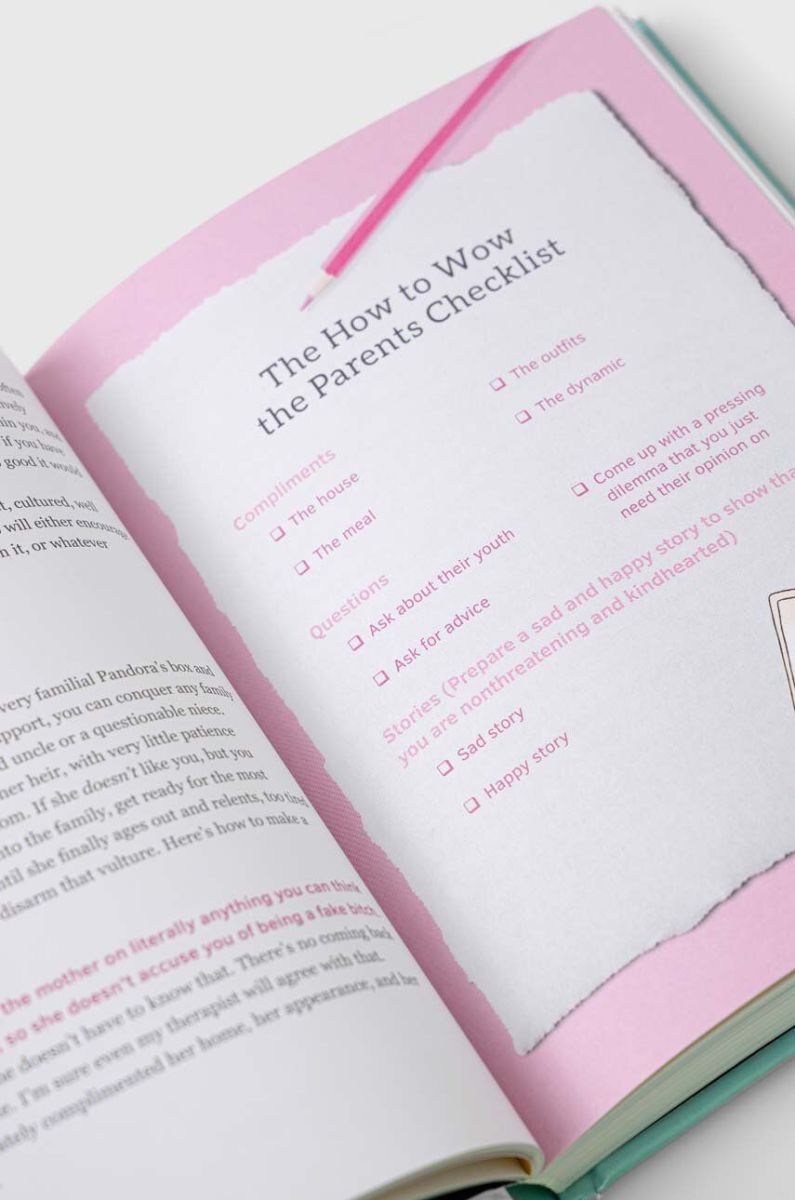 often
you, and
if you have
good it would
t, cultured, well
will either encourage
n it, or whatever
very familial Pandora's box and
pport, you can conquer any family
d uncle or a questionable niece.
her heir, with very little patience
om. If she doesn't like you, but you
nto the family, get ready for the most
ntil she finally ages out and relents, too tired
disarm that vulture. Here's how to make a
the mother on literally anything you can think
, so she doesn't accuse you of being a fake bitch.
he doesn't have to know that. There's no coming back
e. I'm sure even my therapist will agree with that.
ately complimented her home, her appearance, and her
The How to Wow
the Parents Checklist
Compliments
❑ The house
❑ The meal
❑ The outfits
❑ The dynamic
Questions
❑ Ask about their youth
❑ Ask for advice
❑ Come up with a pressing
dilemma that you just
need their opinion on
Stories (Prepare a sad and happy story to show tha
you are nonthreatening and kindhearted)
❑ Sad story
❑ Happy story